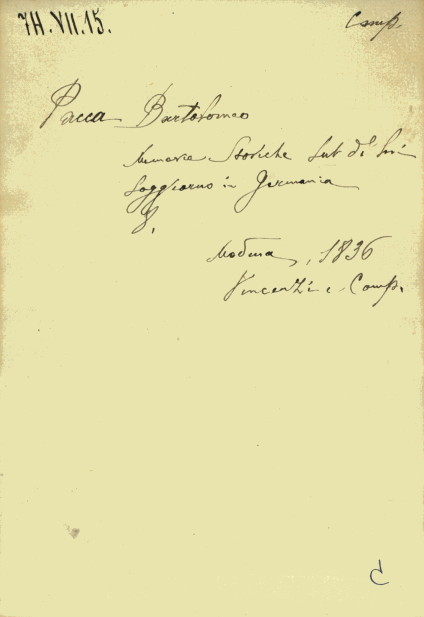 7H.VII.15.
Camp.
Pacca Bartolomeo
Memorie Storiche sul di lui
Soggiorno in Germania
Modena, 1836
Vincenzi e Comp.
C